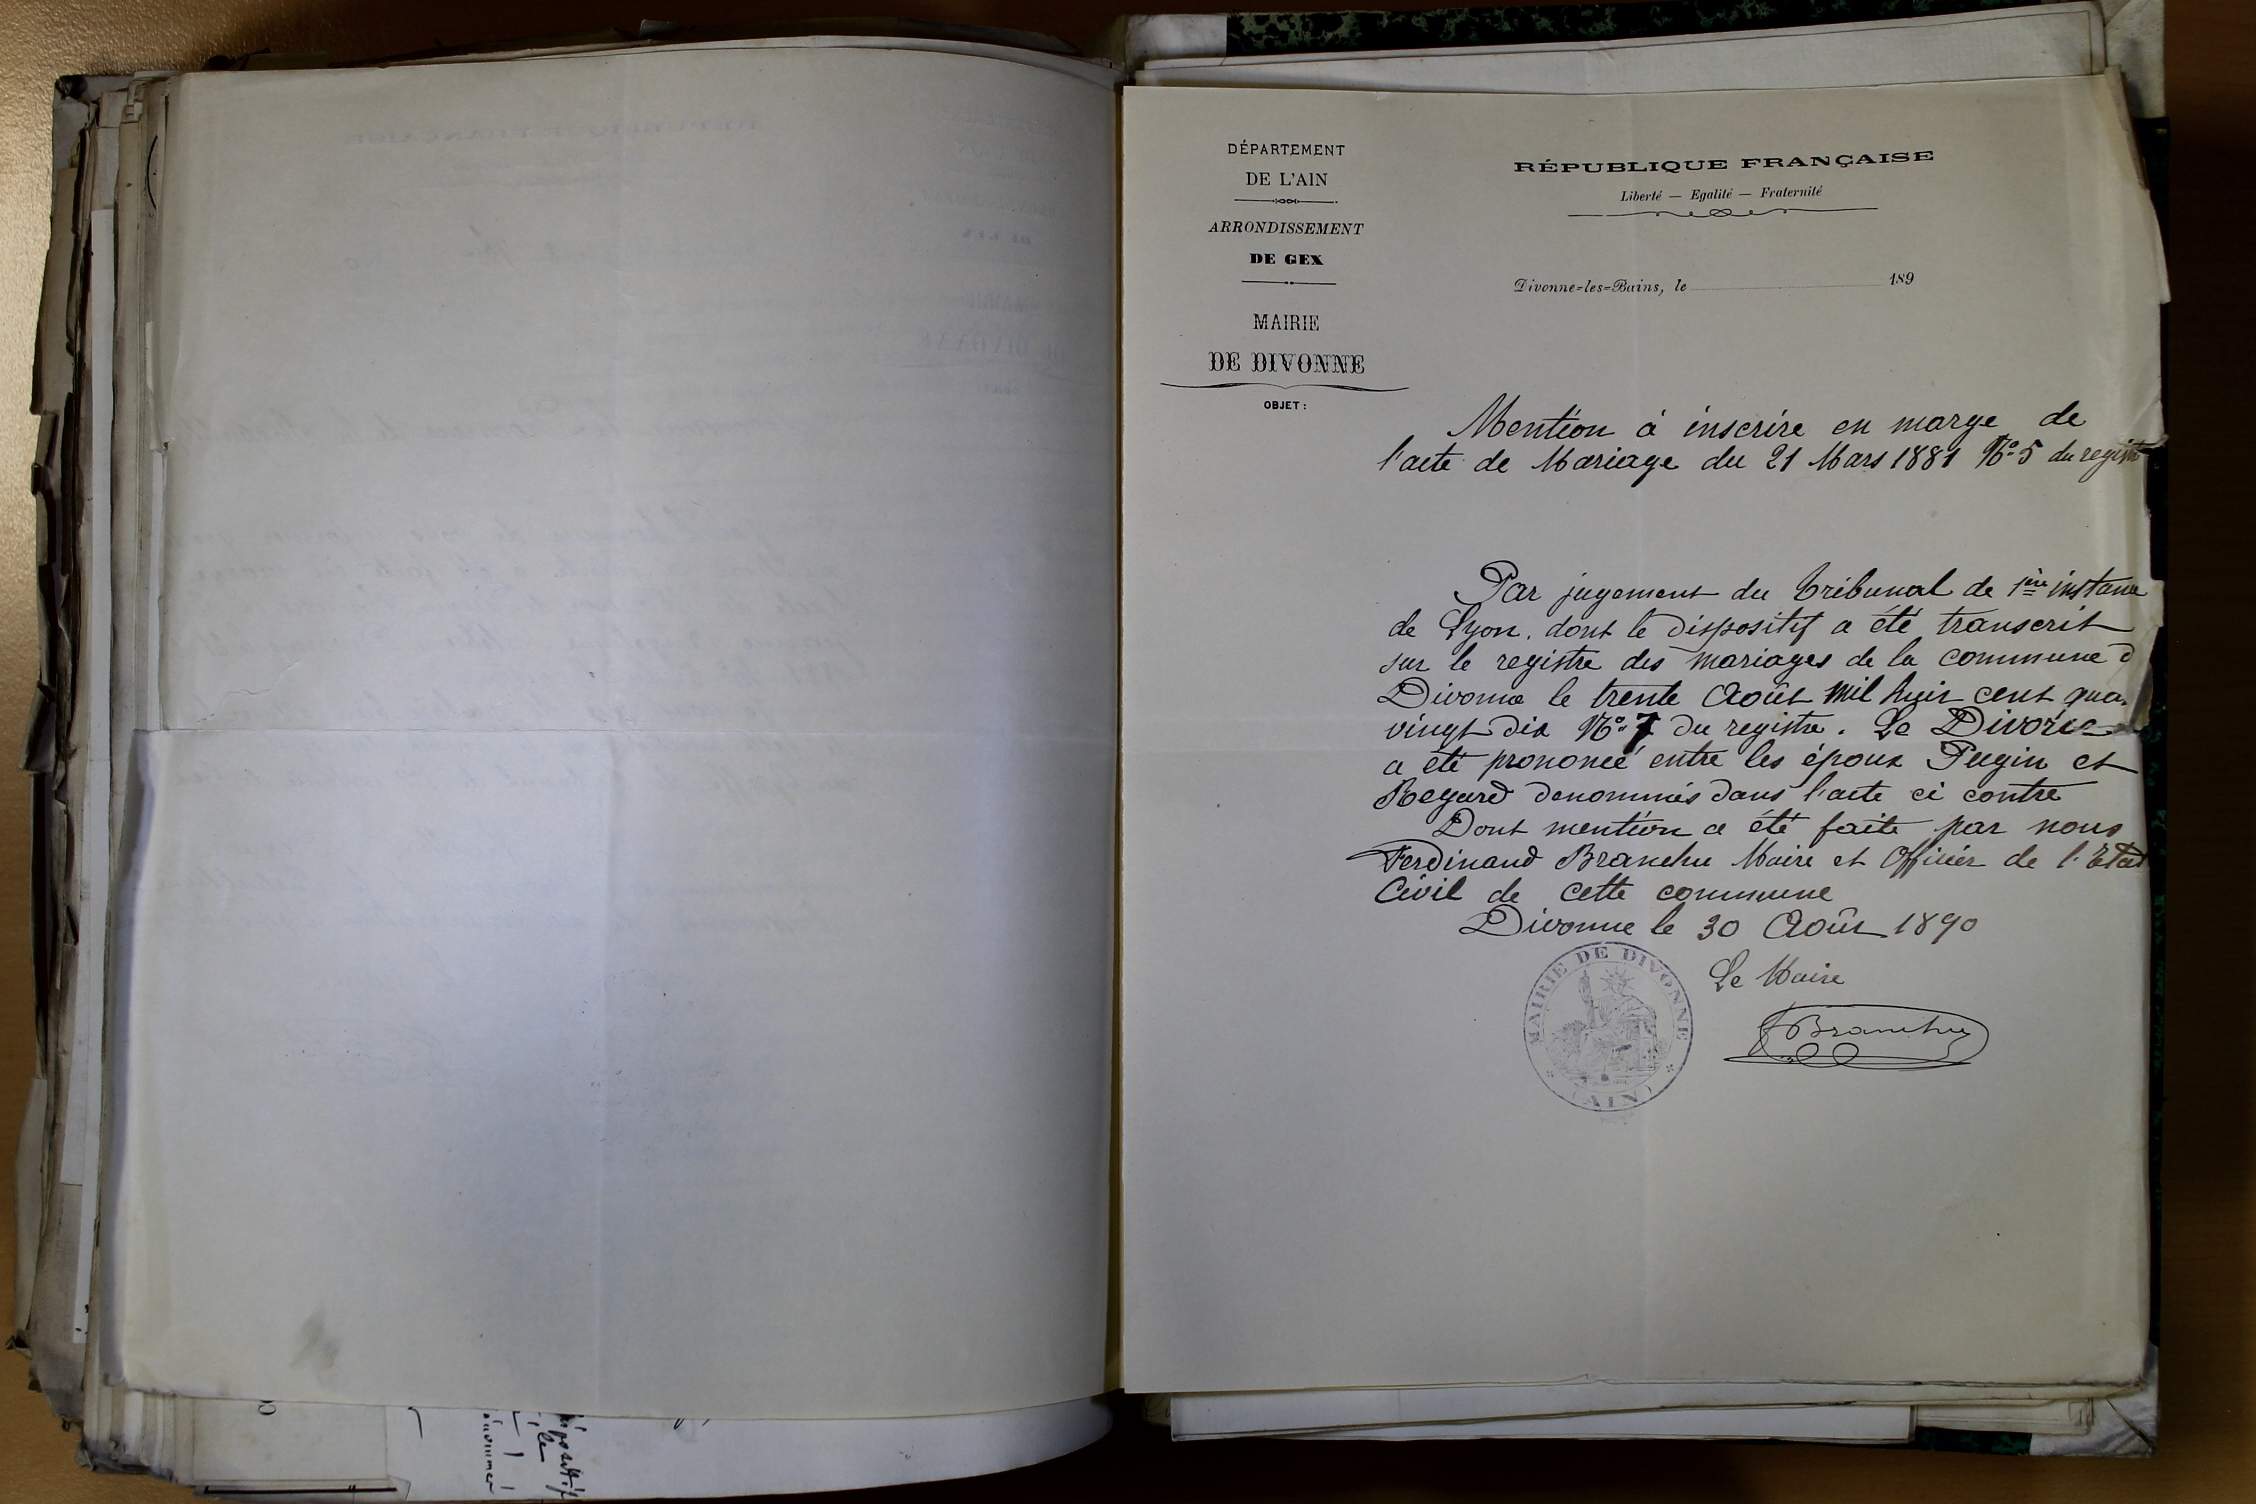 DÉPARTEMENT
DE L'AIN
ARRONDISSEMENT
DE GEX
MAIRIE
DE DIVONNE
OBJET :
RÉPUBLIQUE FRANÇAISE
Liberté — Egalité — Fraternité
Divonne=les=Bains, le 189
Mention à inscrire en marge de
l'acte de Mariage du 21 Mars 1881 No 5 du registre
Par jugement du tribunal de 1ère instance
de Lyon. dont le dispositif a été transcrit
sur le registre des mariages de la commune d
Divonne le trente Août mil huit cent qua
vingt dix No 7 du registre. Le Divorce
a été prononcé entre les époux Pugin et
Regard dénommés dans l'acte ci contre
Dont mention a été faite par nous
Ferdinand Branchu Maire et Officier de l'Etat
Civil de cette commune
Divonne le 30 Août 1890
Le Maire
Branchu
MAIRIE DE DIVONNE
(AIN)